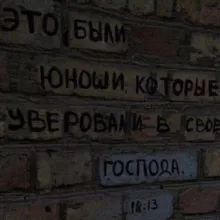 ЭТО БЫЛИ
ЮНОШИ, КОТОРЫЕ
УВЕРОВАЛИ В СВОЕ
ГОСПОДА.
18:13